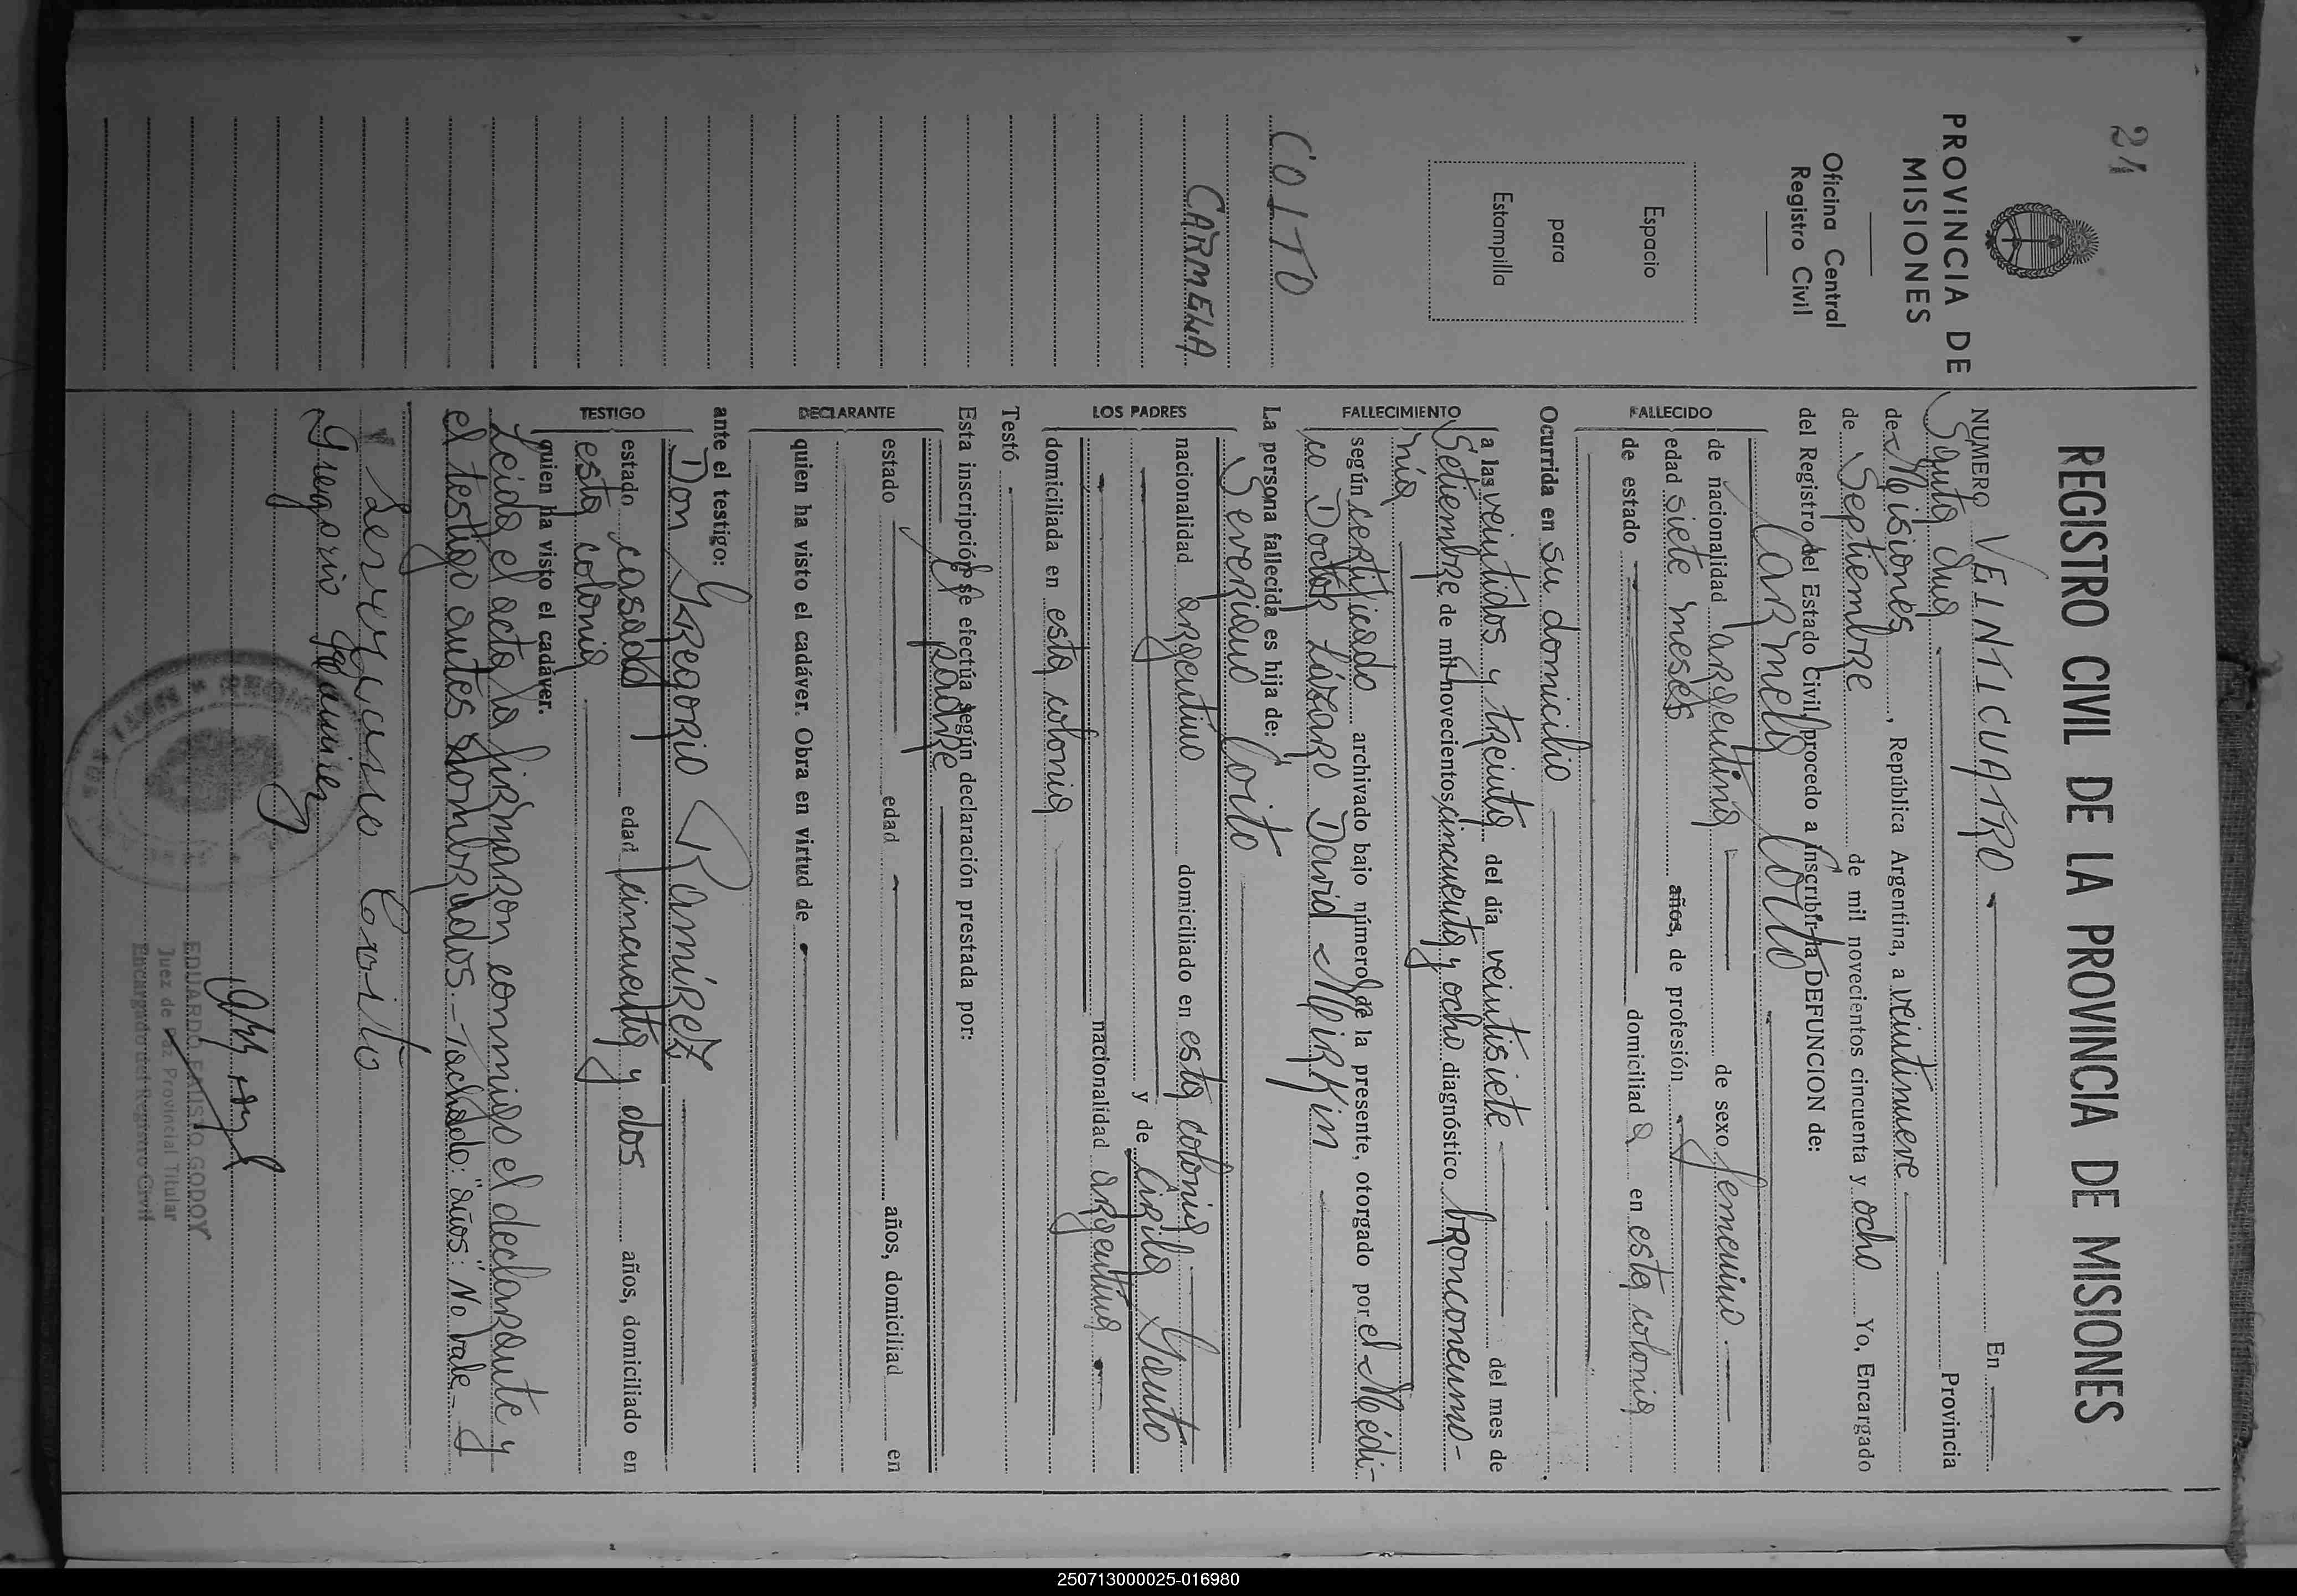 24
PROVINCIA DE
MISIONES
Oficina Central
Registro Civil
Espacio
para
Estampilla
COITO
CARMELA
REGISTRO CIVIL DE LA PROVINCIA DE MISIONES
NUMERO VEINTICUATRO En
Santa Ana Provincia
de Misiones, República Argentina, a veintinueve
de Septiembre de mil novecientos cincuenta y ocho Yo, Encargado
del Registro del Estado Civil procedo a inscribir la DEFUNCION de:
Carmela Coito
FALLECIDO
de nacionalidad argentina de sexo femenino
edad siete meses años, de profesión
de estado domiciliada en esta colonia
Ocurrida en su domicilio
FALLECIMIENTO
a las veintidos y treinta del día veintisiete del mes de
Setiembre de mil novecientos cincuenta y ocho diagnóstico bronconeumo-
nia
según certificado archivado bajo número de la presente, otorgado por el Médi-
co Doctor Lázaro David Mirkin
La persona fallecida es hija de:
LOS PADRES
Severiano Coito
nacionalidad argentino domiciliado en esta colonia
y de Cirila
nacionalidad argentina
domiciliada en esta colonia
Testó
Esta inscripción se efectúa según declaración prestada por:
DECLARANTE
el padre
estado edad años, domiciliad en
quien ha visto el cadáver. Obra en virtud de
ante el testigo:
TESTIGO
Don Gregorio Ramírez
estado casado edad cincuenta y dos años, domiciliado en
esta colonia
quien ha visto el cadáver.
Leida el acta la firmaron conmigo el declarante y
el testigo antes nombrados.- Tachado: "años": No vale.-
Severiano Coito
Gregorio Ramirez
EDUARDO FAUSTO GODOY
Juez de Paz Provincial Titular
Encargado del Registro Civil
250713000025-016980